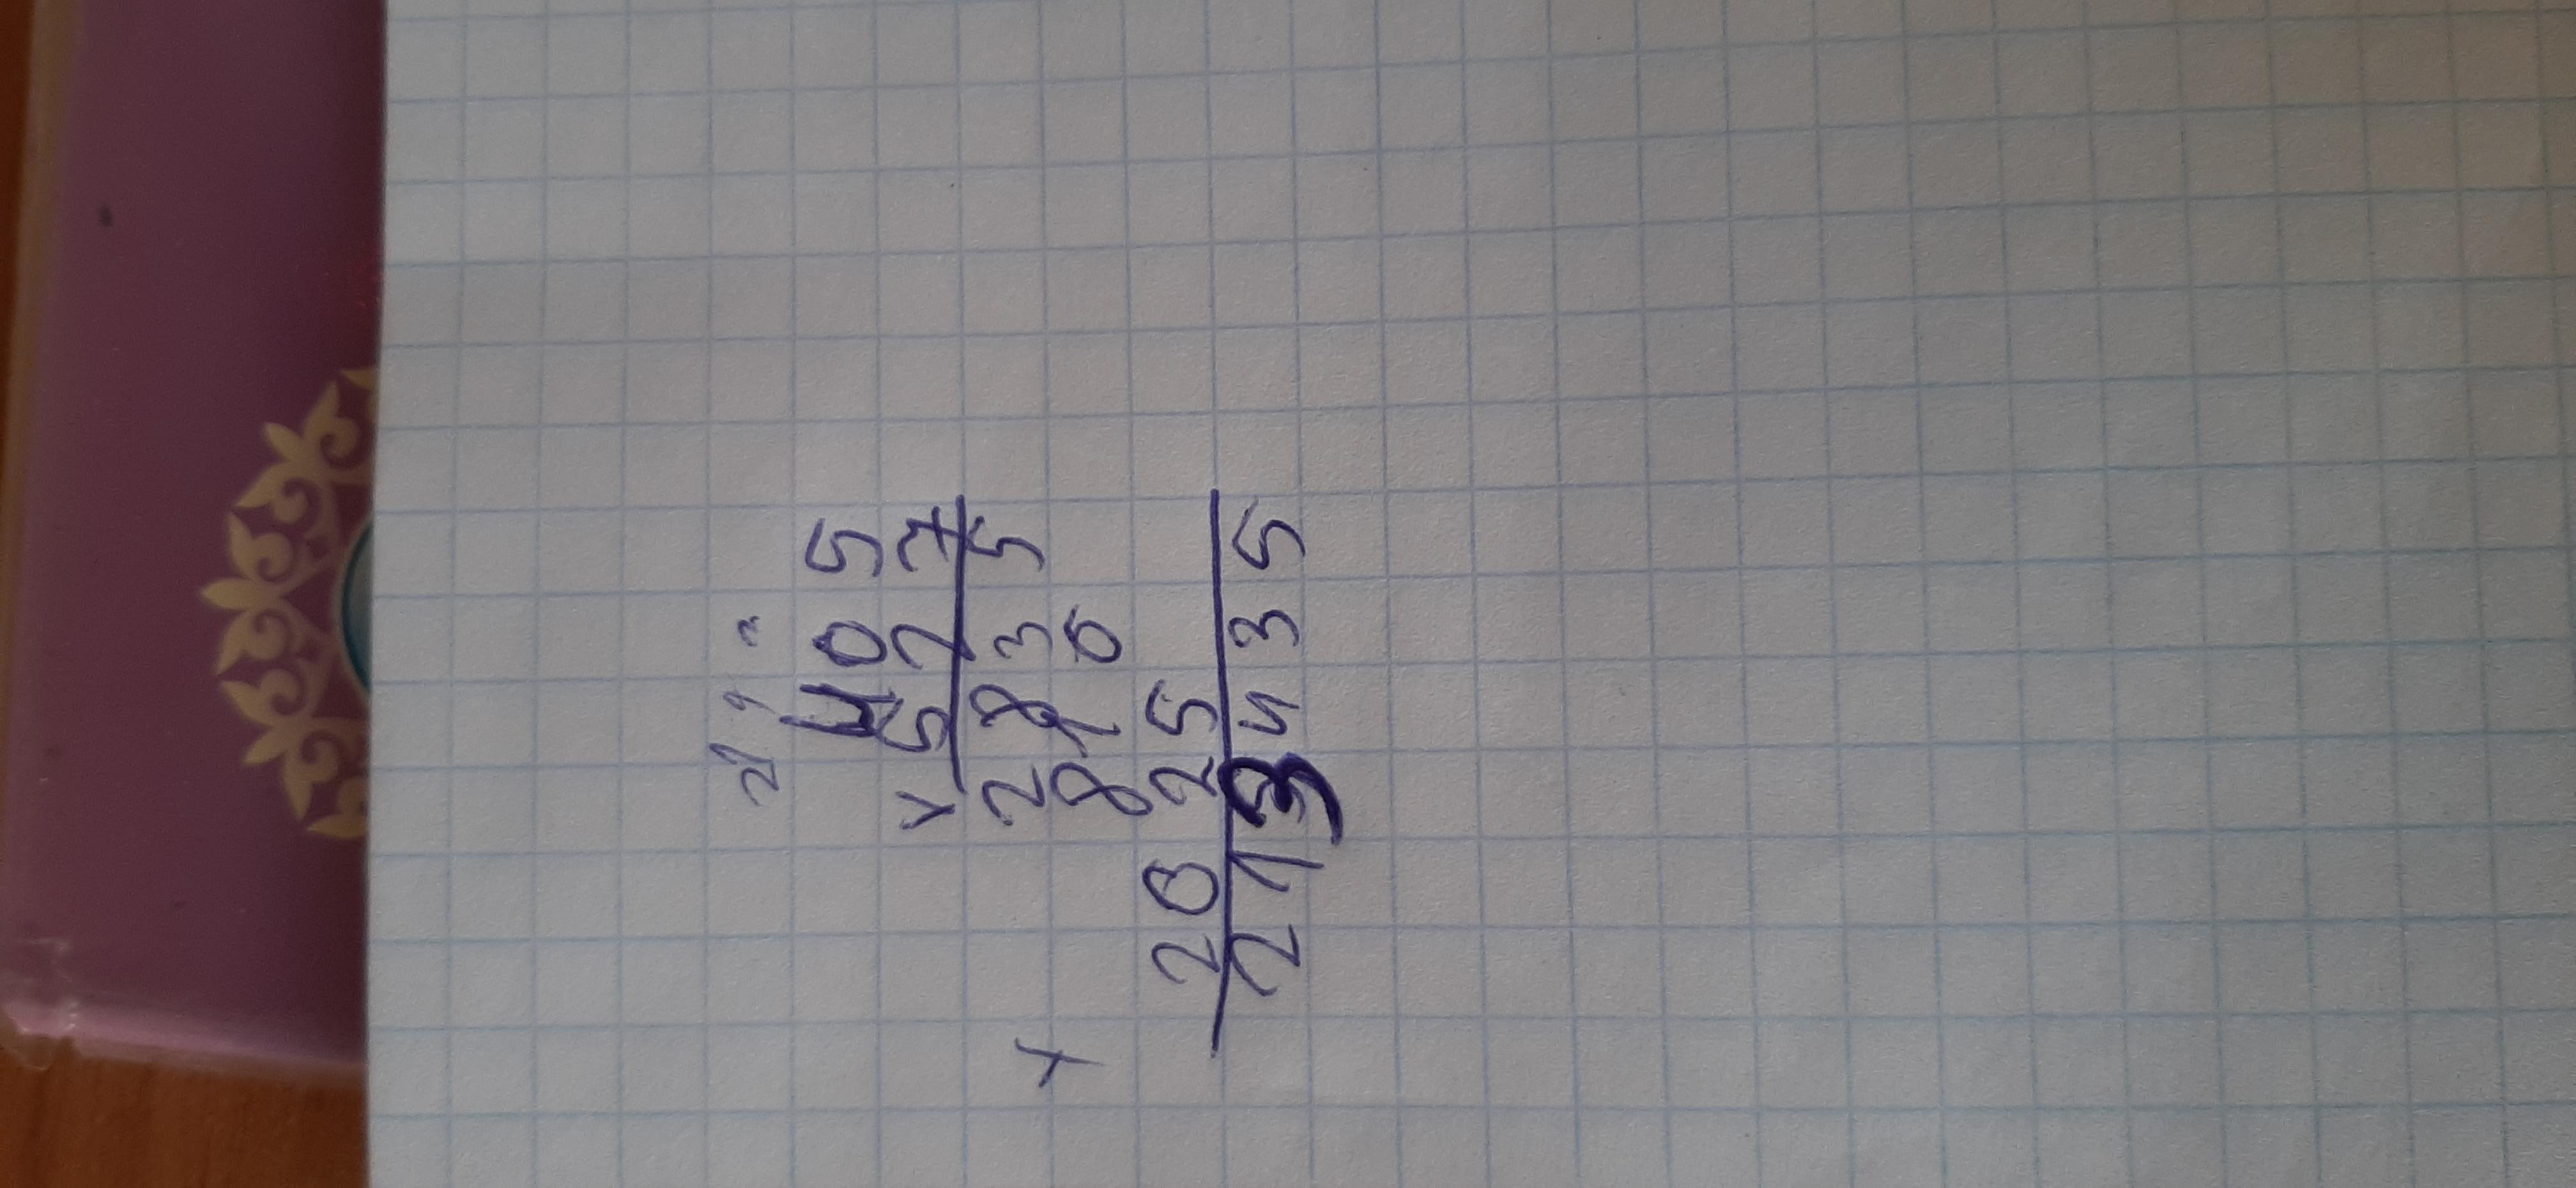 405
× 527
2835
+ 810
2025
213435